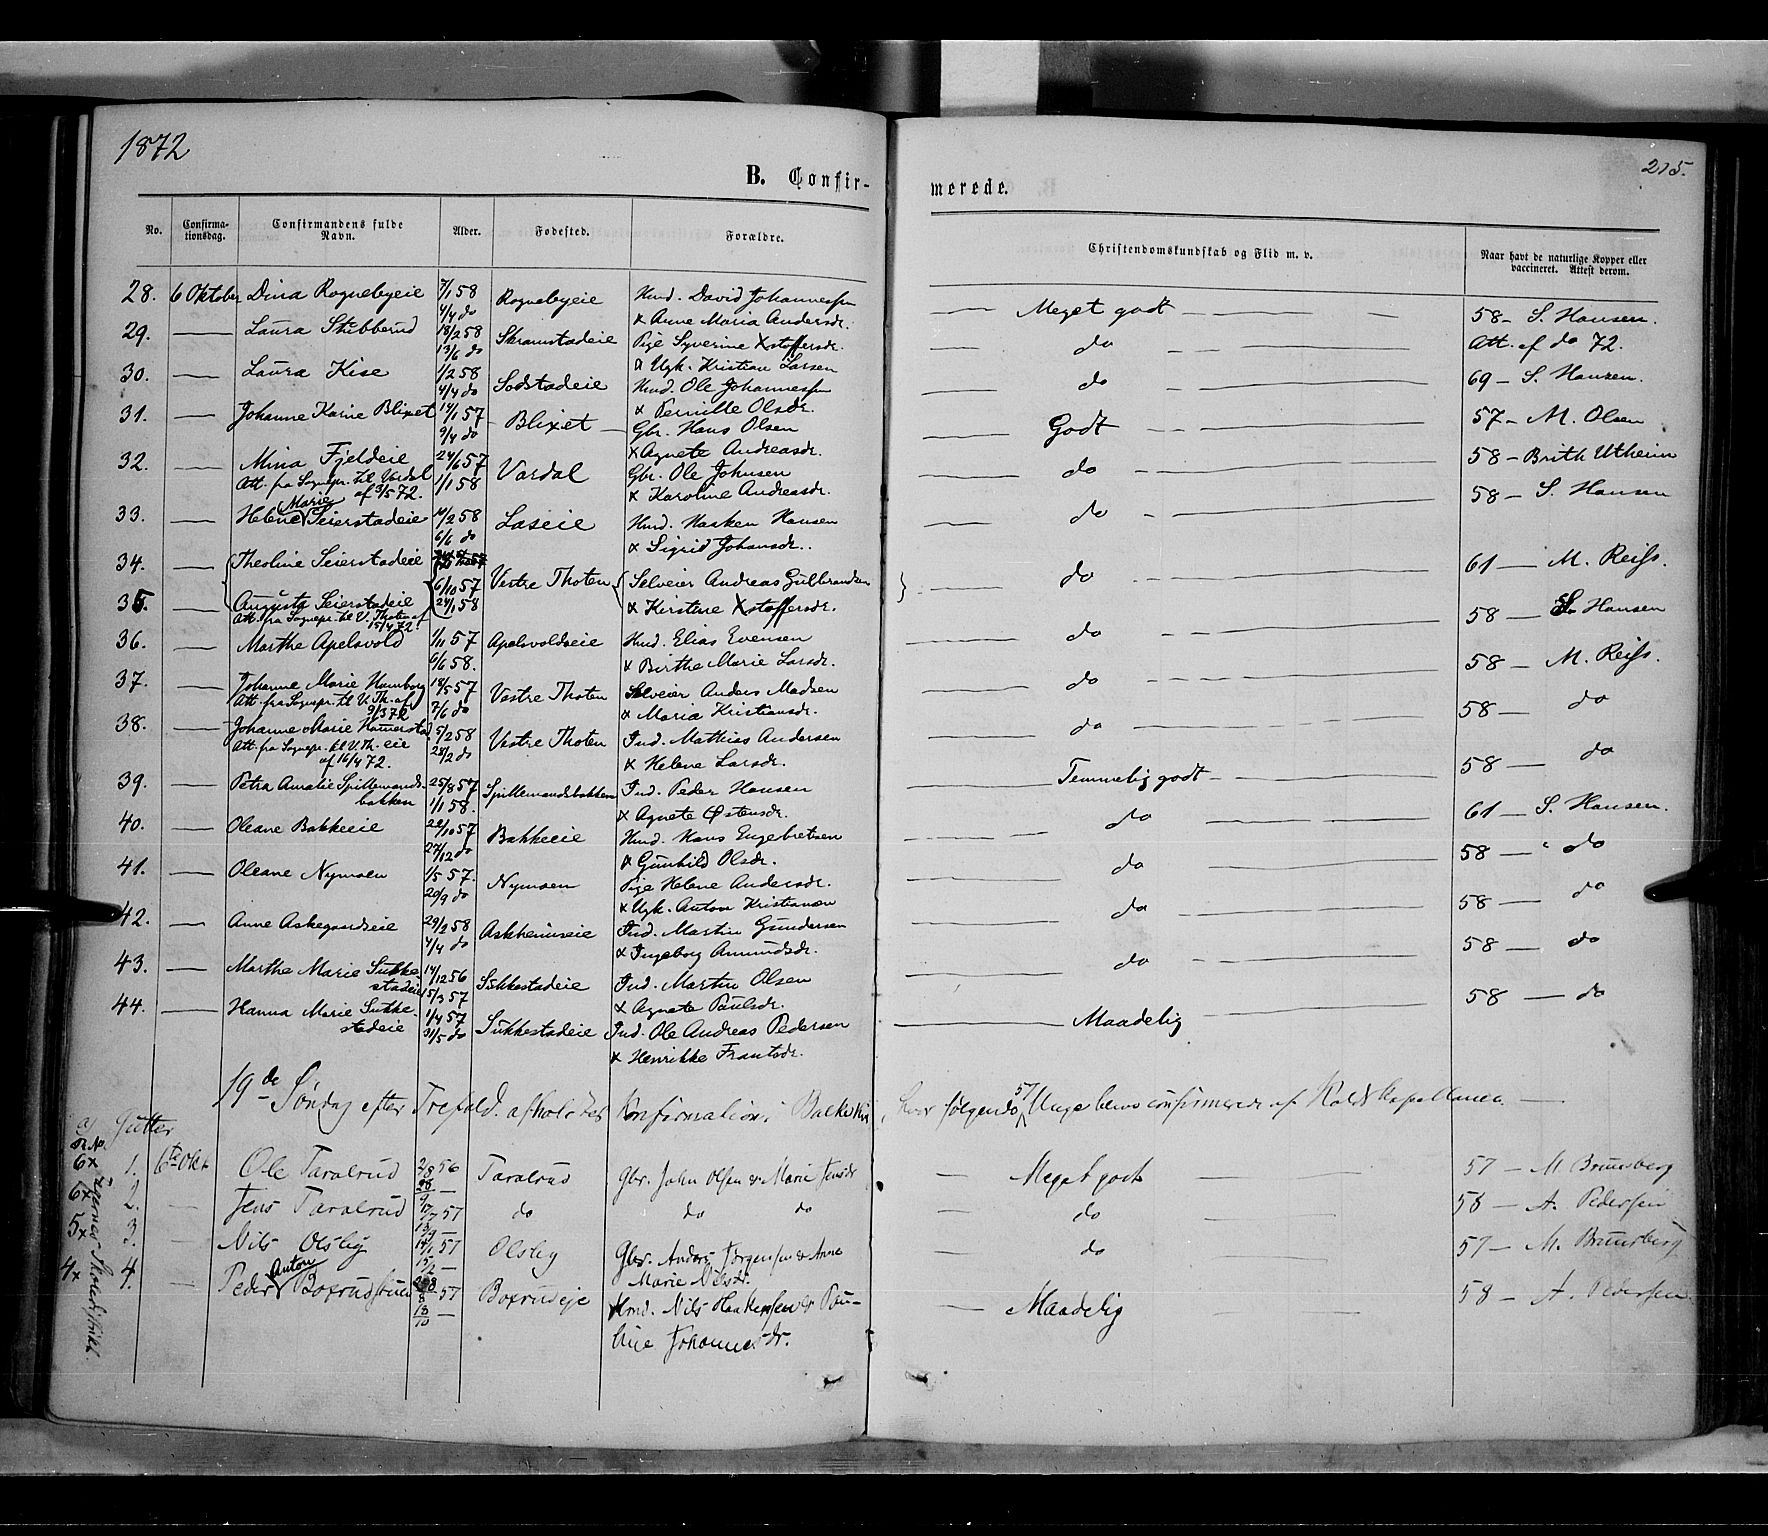 1872
215.
B. Confir-
merede.
No.
Confirma-
tionsdag.
Confirmandens fulde
Navn.
Alder.
Fødested.
Forældre.
Christendomskundskab og Flid m. v.
Naar havt de naturlige Kopper eller
vaccineret. Attest derom.
28. 6 Oktober Dina Rognebyeie 7/1 58 Rognebyeie Hmd. David Johannessen — Meget godt — 58 - S. Hansen.
4/4 do & Anne Maria Andersdr.
29. — Laura Stubberud 18/2 58 Skramstadeie Pige Syverine Xstoffersdr. — do — Att. af do 72.
13/6 do & Ugk. Kristian Larsen
30. — Laura Kise 1/2 58 Sodstadeie Hmd. Ole Johannessen — do — 69 - S. Hansen.
4/4 do & Pernille Olsdr.
31. — Johanne Karine Blixet 14/1 57 Blixet — Gbr. Hans Olsen — Godt — 57 - M. Olsen
9/4 do & Agnete Andreasdr.
32. — Mina Fjeldeie 24/6 57 Vardal Gbr. Ole Johnsen — do — 58 - Brith Utheim
Att. fra Sognepr. til Vardal 1/1 58 & Karoline Andreasdr.
af 3/5 72.
33. — Helene Marie Seierstadeie 10/2 58 Laseie Hmd. Haaken Hansen — do — 58 - S. Hansen
6/6 do & Sigrid Johansdr.
34. — Theoline Seierstadeie 6/10 57 Vestre Thoten Selveier Andreas Gulbrandsen — do — 61 — M. Reiss.
35. — Augusta Seierstadeie 24/1 58 & Kirstine Xstoffersdr. 58 — S. Hansen
Att. fra Sognepr. til V. Thoten af
15/4 72.
36. — Marthe Apelsvold 1/11 57 Apelsvoldseie Hmd. Elias Evensen — do — 58 — M. Reiss.
6/6 58. & Birthe Marie Larsdr.
37. — Johanne Marie Hamborg 18/5 57 Vestre Thoten Selveier Anders Madsen — do — 58 — do
Att. fra Sognepr. til V. Th. af 7/6 do & Maria Kristiansdr.
9/3 72
38. — Johanne Marie Hammerstad 5/2 58 Vestre Thoten Ind. Mathias Andersen — do — 58 — do
Att. fra Sognepr. til V. Th. eie 28/2 do & Helene Larsdr.
af 16/4 72.
39. — Petra Amalie Spillemands- 25/8 57 Spillemandsbakken Ind. Peder Hansen — Temmelig godt — 61 — S. Hansen.
bakken 1/1 58. & Agnete Østensdr.
40. — Oleane Bakkeeie 22/10 57 Bakkeeie Hmd. Hans Engebretsen — do — 58 — do
27/12 do & Gunhild Olsdr.
41. — Oleane Nymoen 1/5 57. Nymoen Pige Helene Andersdr. — do — 58 — do
20/9 do & Ugk. Anton Kristiansen
42. — Anne Askegaardseie 29/1 58 Askheimseie Ind. Martin Gundersen — do — 58 — do
4/4 do & Ingeborg Amundsdr.
43. — Marthe Marie Sukke- 14/12 56 Sukkestadeie Ind. Martin Olsen — do — 58 — do
stadeie 15/3 57 & Agnete Paulsdr.
44. — Hanna Marie Sukke- 1/4 57 Sukkestadeie Ind. Ole Andreas Pedersen — Maadelig
stadeie 31/5 do & Henrikke Frantsdr.
19de Søndag efter Trefold. afholdtes Konfirmation i Balke Kir hvor følgende 57 Unge blev confirmerede af Kapellanen. —
a) Gutter
6x 1. 6te Okt Ole Taralrud 56 Taralrud Gbr. John Olsen & Marie Jensdr — Meget godt 57 - M. Brunsberg
6x 2. — Jens Taralrud 57 do do do — do 58 - A. Pedersen
5x 3. — Nils Olsby 14/1 57 Olsby Gbr. Anders Jørgensen & Anne — do 57 - M. Brunsberg
Marie Nilsdr.
4x 4. — Peder Anton Boxrudstuen 57 Boxrudeje Hmd. Nils Haakensen & Pau- — Maadelig 58 - A. Pedersen.
line Johannesdr.